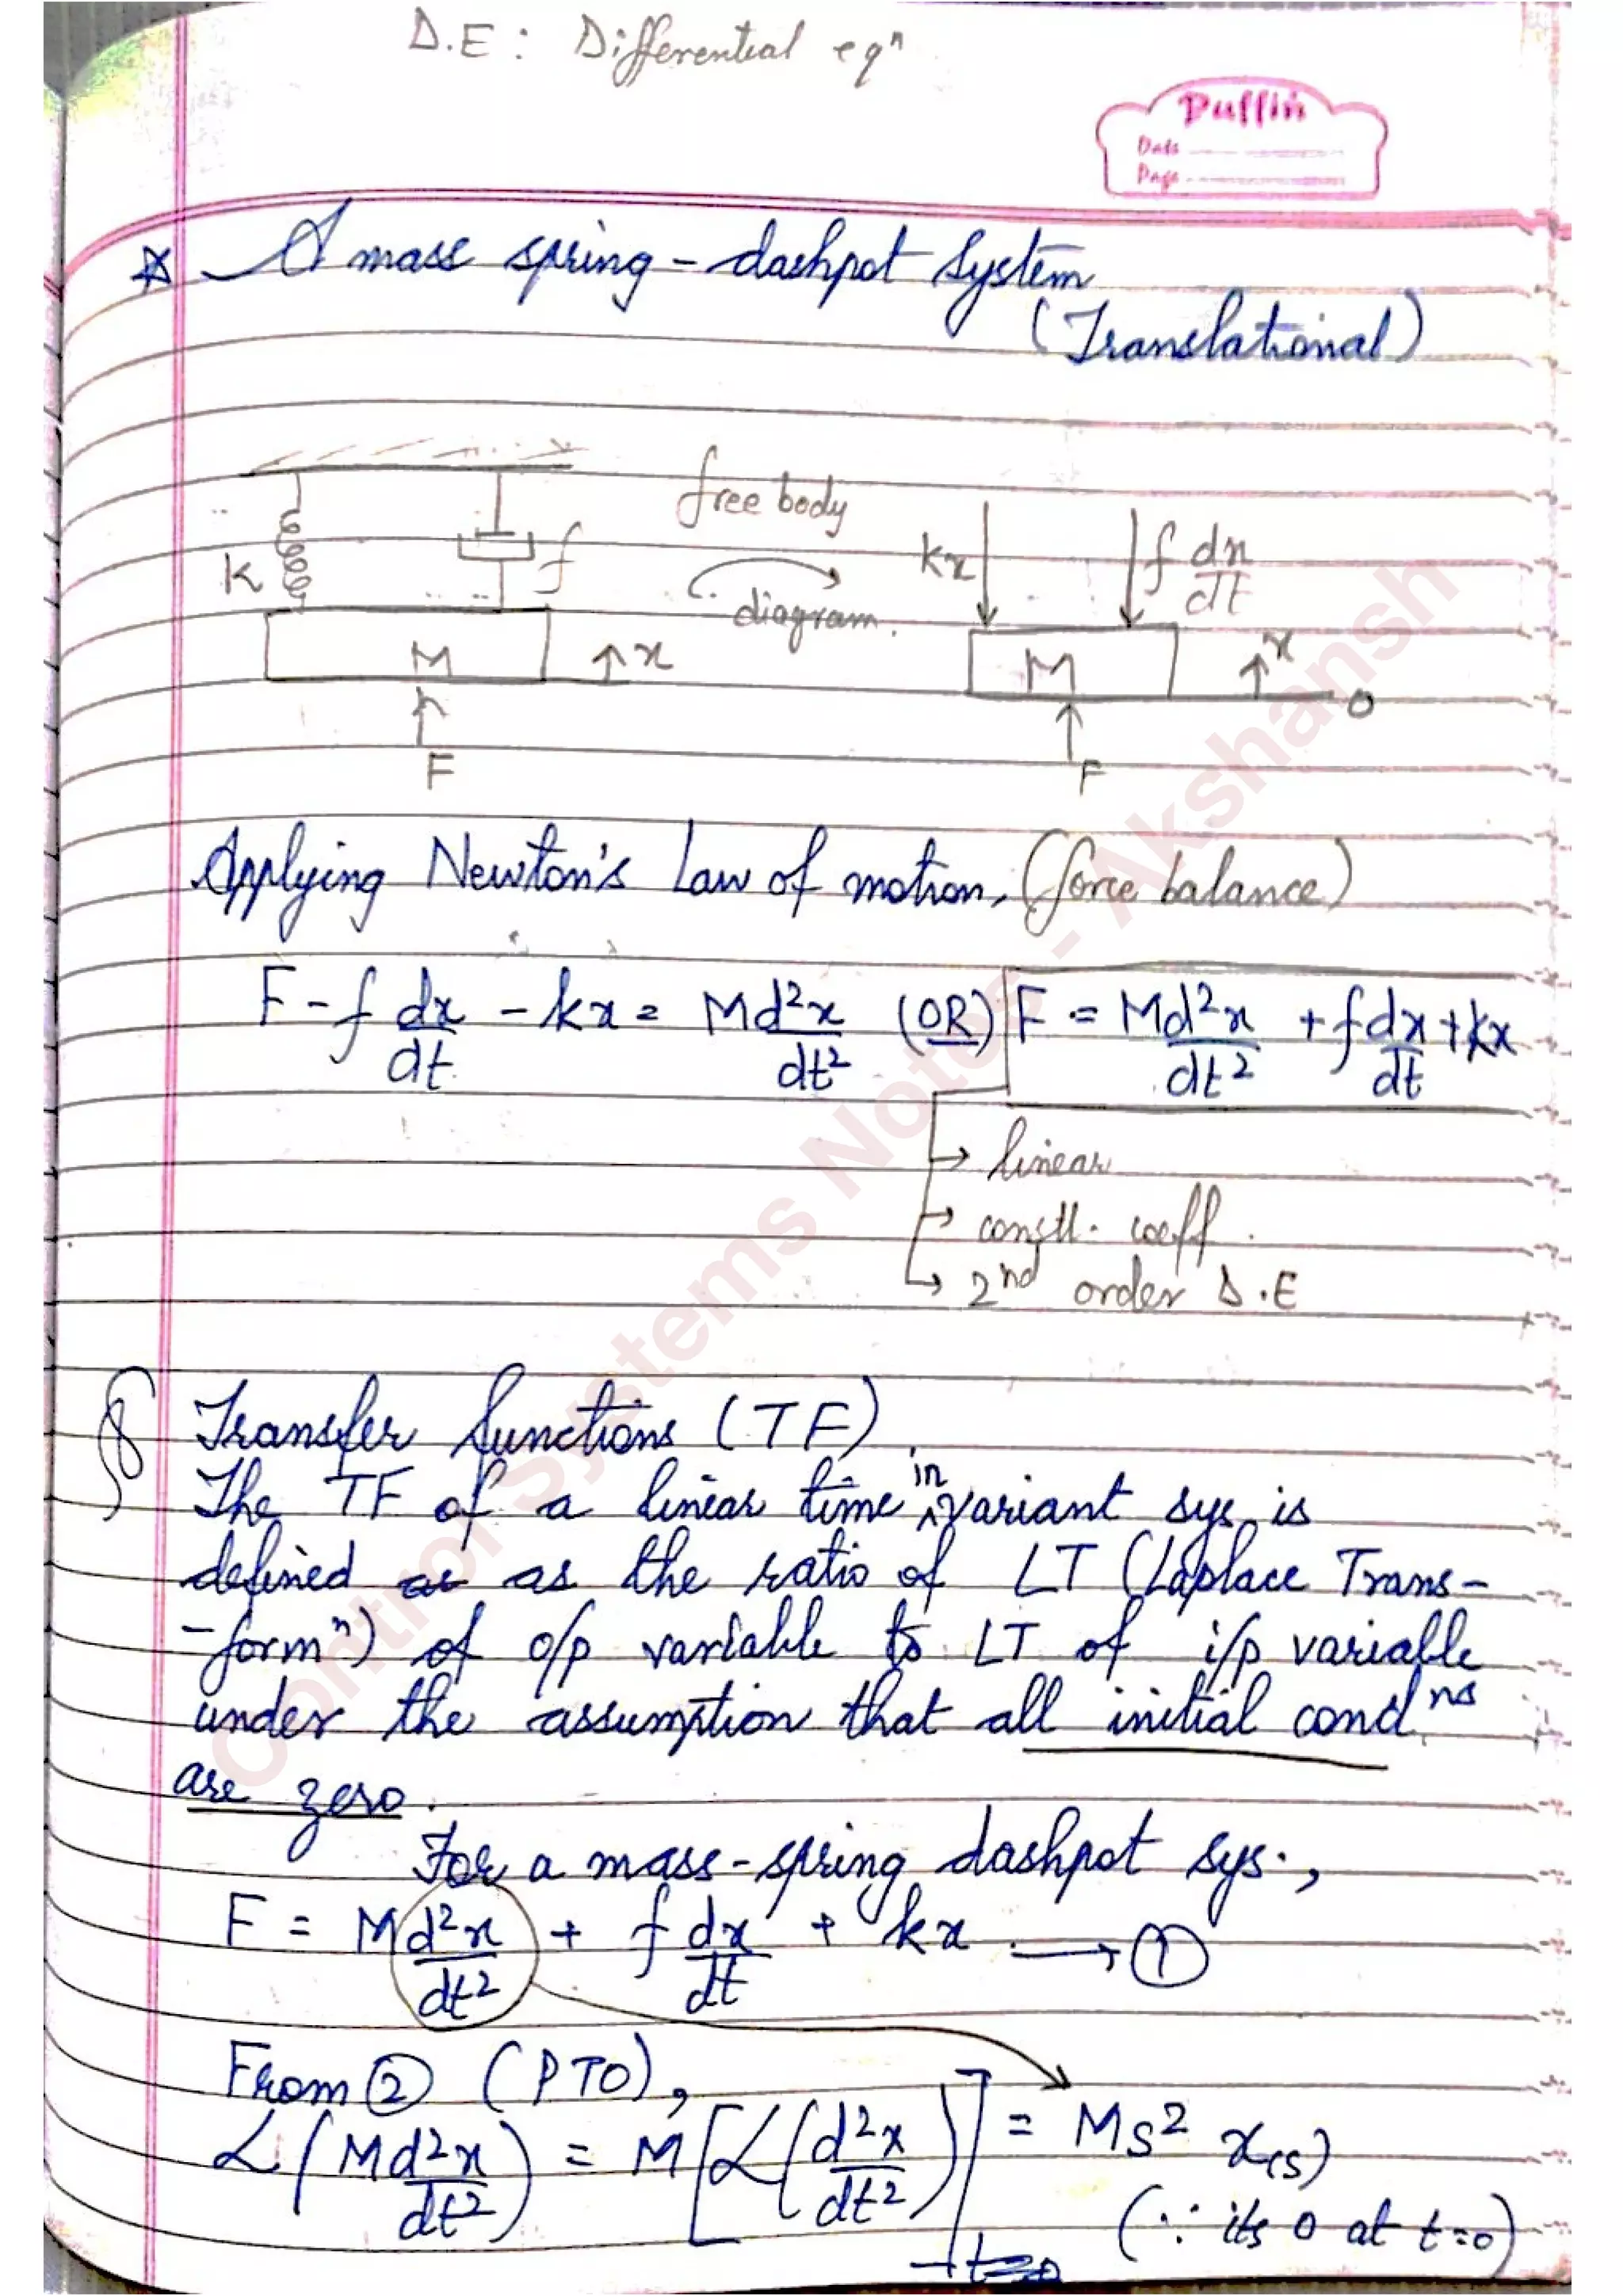 D.E : Differential eqⁿ
Puffin
Date
Page
☆ A mass spring - dashpot system
(Translational)
free body
diagram.
K
f
M
↑x
F
kx
f dx/dt
M
↑x
0
F
Applying Newton's Law of motion, (force balance)
F - f dx/dt - kx = M d²x/dt² (OR) F = M d²x/dt² + f dx/dt + kx
→ linear
→ constt. coeff.
→ 2nd order D.E
§ Transfer functions (TF)
The TF of a linear time invariant sys is
defined as as the ratio of LT (Laplace Trans-
-formⁿ) of o/p variable to LT of i/p variable
under the assumption that all initial condⁿˢ
are zero.
For a mass-spring dashpot sys.,
F = M d²x/dt² + f dx/dt + kx → ①
From ② (PTO),
ℒ(M d²x/dt²) = M[ℒ(d²x/dt²)] = Ms² x(s)
t=0
(∵ its 0 at t=0)
Control Systems Notes - Akshansh